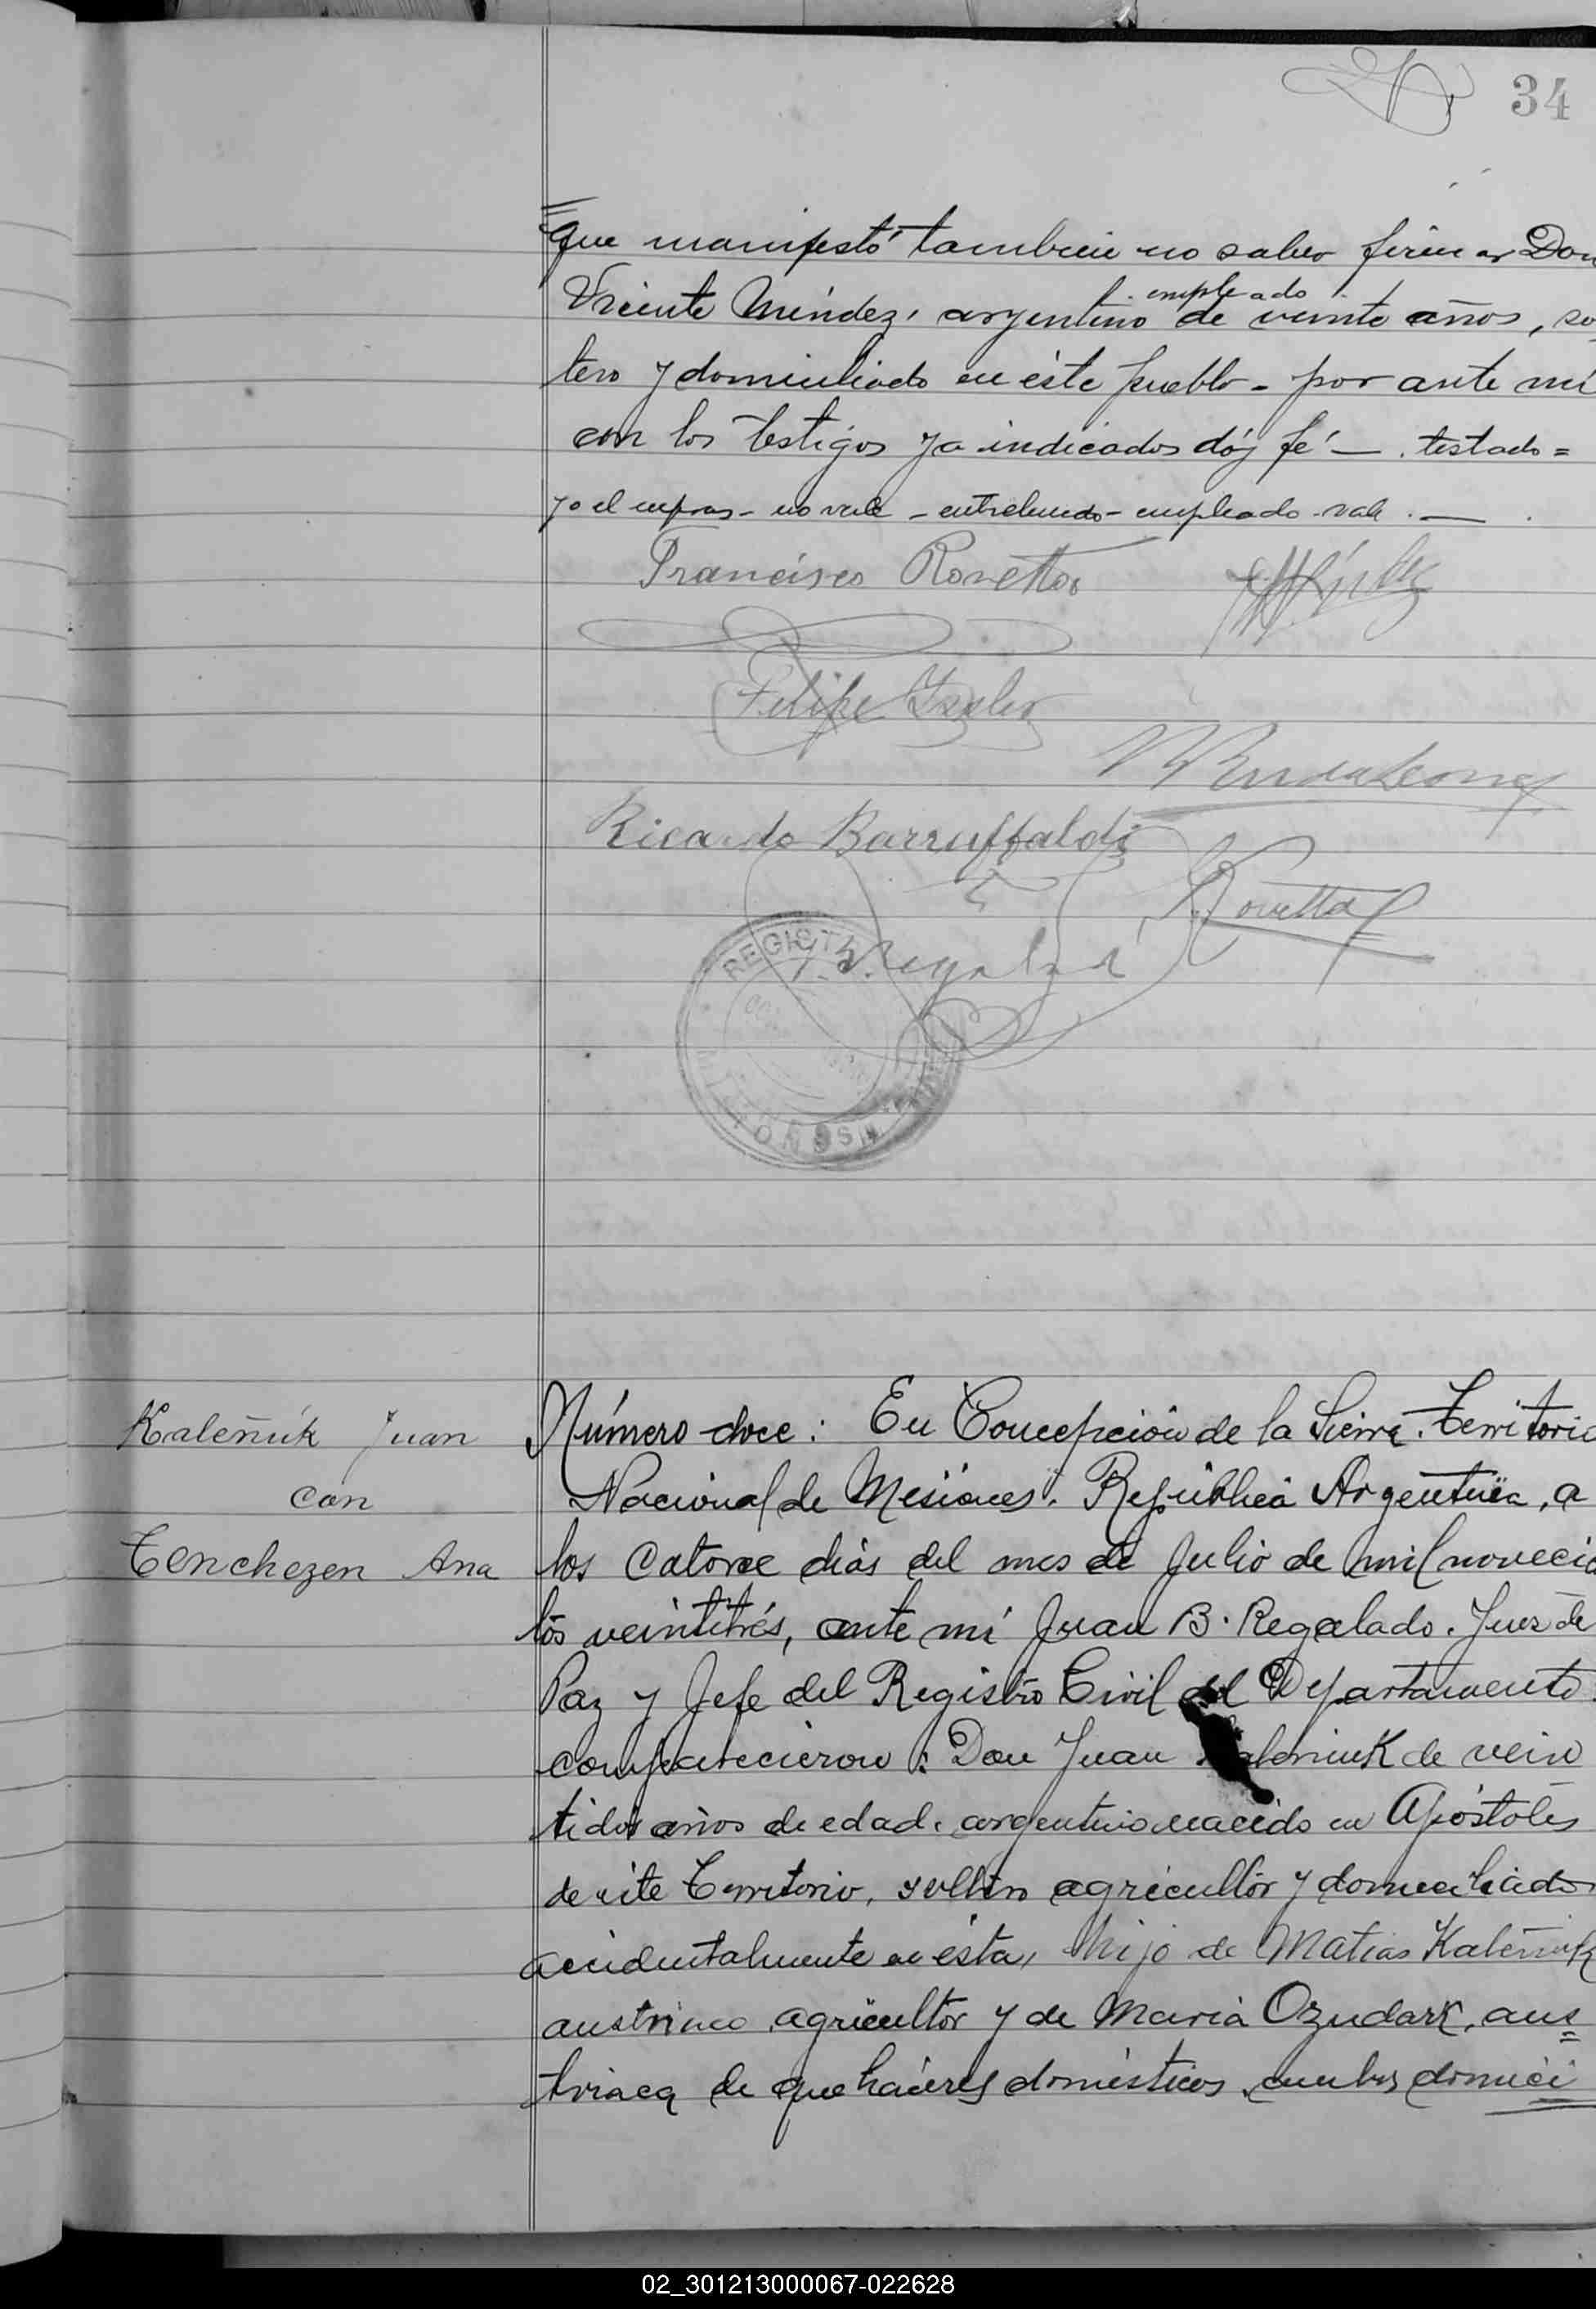 34
que manifestó tambien no saber firmar Don
empleado
Vicente Méndez, argentino de veinte años, sol
tero y domiciliado en éste pueblo - por ante mí
con los testigos ya indicados dóy fé — . testado =
no vale - entrelineado - empleado - vale . —
Francisco Rovetta
Felipe
Ricardo Barruffaldi
Rovetta
REGISTRO
MISIONES
Kaleñuk Juan
con
Tenchezen Ana
Número doce: En Concepción de la Sierra. Territorio
Nacional de Misiones. República Argentina, a
los Catorce dias del mes de Julio de mil novecien
tos veintitrés, ante mí Juan B. Regalado. Juez de
Paz y Jefe del Registro Civil del Departamento
comparecieron: Don Juan Kaleniuk de vein
tidos años de edad. argentino nacido en Apóstoles
de este Territorio, soltero agricultor y domiciliado
accidentalmente en ésta, hijo de Matias Kaleñuk
austriaco, agricultor y de María Ozudark, aus
triaca de quehaceres domésticos, ambos domici
02_301213000067-022628